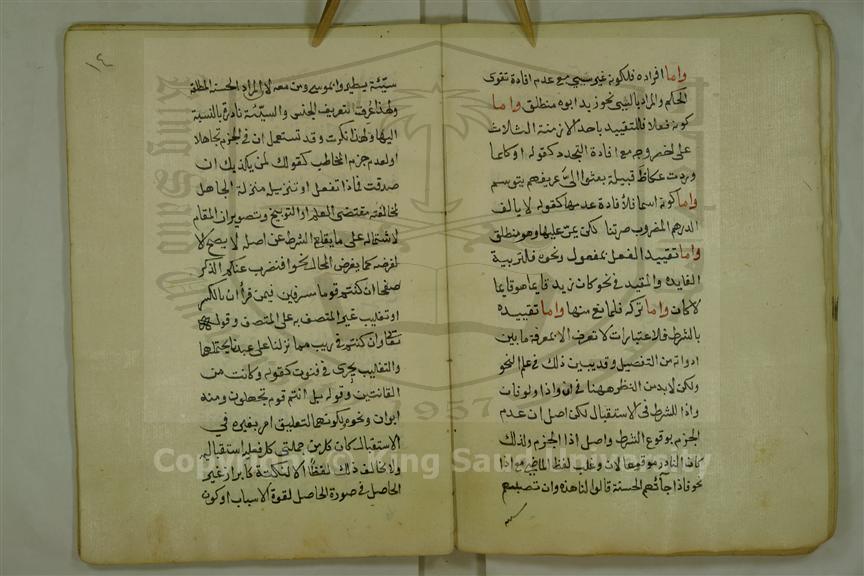 واما افراده فلكونه غير سببي مع عدم افادة تقوى
الحكم والمراد بالسببي نحو زيد ابوه منطلق واما
كونه فعلا فللتقييد باحد الازمنة الثلاث
على اخصر وجه مع افادة التجدد كقوله او كلما
وردت عكاظ قبيلة بعثوا الي عريفهم يتوسم
واما كونه اسما فلافادة عدمها كقوله لا يالف
الدرهم المضروب صرتنا لكن يمر عليها وهو منطلق
واما تقييد الفعل بمفعول ونحوه فلتربية
الفايدة والمقيد في نحو كان زيد قايما هو قايما
لا كان واما تركه فلمانع منها واما تقييده
بالشرط فلاعتبارات لا تعرف الا بمعرفة ما بين
ادواته من التفصيل وقد بين ذلك في علم النحو
ولكن لابد من النظر ههنا في ان واذا ولو فان
واذا للشرط في الاستقبال لكن اصل ان عدم
الجزم بوقوع الشرط واصل اذا الجزم ولذلك
كان النادر موقعا لان وغلب لفظ الماضي مع اذا
نحو فاذا جآتهم الحسنة قالوا لنا هذه وان تصبهم
١٤
سيئة يطيروا بموسى ومن معه لان المراد الحسنة المطلقة
ولهذا عرفت تعريف الجنس والسيئة نادرة بالنسبة
اليها ولهذا نكرت وقد تستعمل ان في الجزم تجاهلا
او لعدم جزم المخاطب كقولك لمن يكذبك ان
صدقت فماذا تفعل او تنزيله منزلة الجاهل
لمخالفته مقتضى العلم او التوبيخ وتصوير ان المقام
لاشتماله على ما يقلع الشرط عن اصله لا يصح الا
لفرضه كما يفرض المحال نحو افنضرب عنكم الذكر
صفحا ان كنتم قوما مسرفين فيمن قرأ ان بالكسر
او تغليب غير المتصف به على المتصف وقوله
تعالى وان كنتم في ريب مما نزلنا على عبدنا يحتملهما
والتغليب يجرى في فنون كقوله وكانت من
القانتين وقوله بل انتم قوم تجهلون ومنه
ابوان ونحوه ولكونهما لتعليق امر بغيره في
الاستقبال كان كل من جملتي كل فعلية استقبالية
ولا يخالف ذلك لفظا الا لنكتة كابراز غير
الحاصل في صورة الحاصل لقوة الاسباب او كون
King Saud University
1957
Copyright © King Saud University